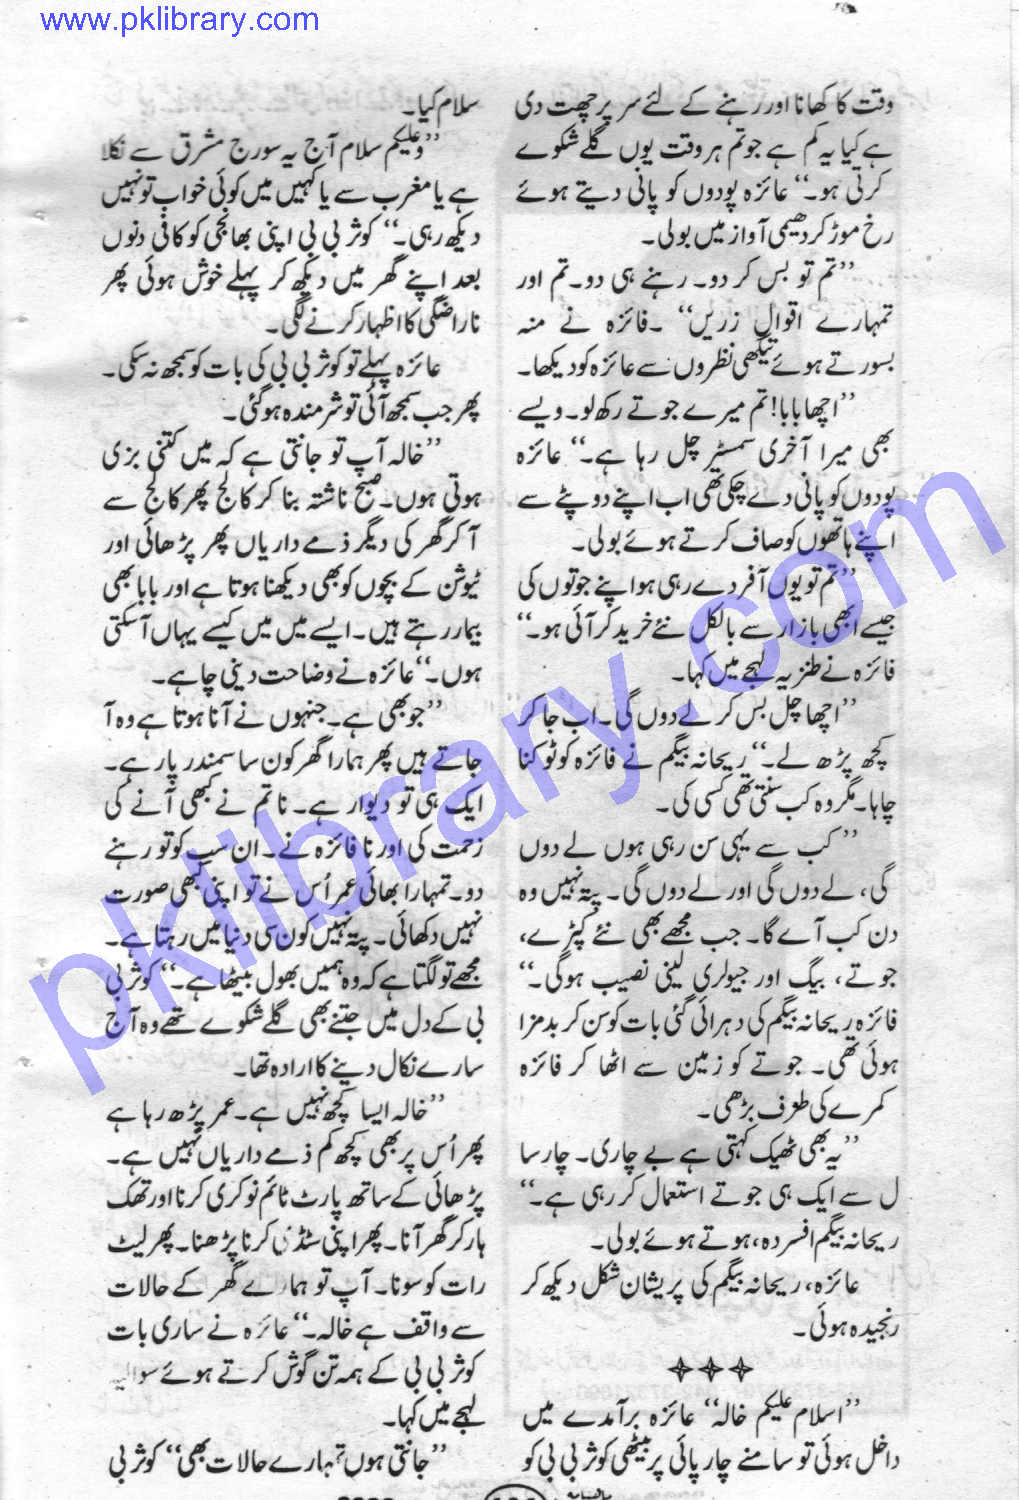 www.pklibrary.com
وقت کا کھانا اور رہنے کے لئے سر پر چھت دی
ہے کیا یہ کم ہے جو تم ہر وقت یوں گلے شکوے
کرتی ہو۔‘‘ عائزہ پودوں کو پانی دیتے ہوئے
رخ موڑ کر دھیمی آواز میں بولی۔
’’تم تو بس کر دو۔ رہنے ہی دو۔ تم اور
تمہارے اقوال زریں‘‘ ۔ فائزہ نے منہ
بسورتے ہوئے تیکھی نظروں سے عائزہ کو دیکھا۔
’’اچھا بابا! تم میرے جوتے رکھ لو۔ ویسے
بھی میرا آخری سمسٹر چل رہا ہے۔‘‘ عائزہ
پودوں کو پانی دے چکی تھی اب اپنے دوپٹے سے
اپنے ہاتھوں کو صاف کرتے ہوئے بولی۔
’’تم تو یوں آفر دے رہی ہو اپنے جوتوں کی
جیسے ابھی بازار سے بالکل نئے خرید کر آئی ہو۔‘‘
فائزہ نے طنزیہ لہجے میں کہا۔
’’اچھا چل بس کر لے دوں گی۔ اب جا کر
کچھ پڑھ لے۔‘‘ ریحانہ بیگم نے فائزہ کو ٹوکنا
چاہا۔ مگر وہ کب سنتی تھی کسی کی۔
’’کب سے یہی سن رہی ہوں لے دوں
گی، لے دوں گی اور لے دوں گی۔ پتہ نہیں وہ
دن کب آے گا۔ جب مجھے بھی نئے کپڑے،
جوتے، بیگ اور جیولری لینی نصیب ہوگی۔‘‘
فائزہ ریحانہ بیگم کی دہرائی گئی بات کو سن کر بدمزا
ہوئی تھی۔ جوتے کو زمین سے اٹھا کر فائزہ
کمرے کی طرف بڑھی۔
’’یہ بھی ٹھیک کہتی ہے بے چاری۔ چار سا
ل سے ایک ہی جوتے استعمال کر رہی ہے۔‘‘
ریحانہ بیگم افسردہ، ہوتے ہوئے بولی۔
عائزہ، ریحانہ بیگم کی پریشان شکل دیکھ کر
رنجیدہ ہوئی۔
✧✧✧
’’اسلام علیکم خالہ‘‘ عائزہ برآمدے میں
داخل ہوئی تو سامنے چارپائی پر بیٹھی کوثر بی بی کو
سلام کیا۔
’’وعلیکم سلام آج یہ سورج مشرق سے نکلا
ہے یا مغرب سے یا کہیں میں کوئی خواب تو نہیں
دیکھ رہی۔‘‘ کوثر بی بی اپنی بھانجی کو کافی دنوں
بعد اپنے گھر میں دیکھ کر پہلے خوش ہوئی پھر
ناراضگی کا اظہار کرنے لگی۔
عائزہ پہلے تو کوثر بی بی کی بات کو سمجھ نہ سکی۔
پھر جب سمجھ آئی تو شرمندہ ہوگئی۔
’’خالہ آپ تو جانتی ہے کہ میں کتنی بزی
ہوتی ہوں۔ صبح ناشتہ بنا کر کالج پھر کالج سے
آ کر گھر کی دیگر ذمے داریاں پھر پڑھائی اور
ٹیوشن کے بچوں کو بھی دیکھنا ہوتا ہے اور بابا بھی
بیمار رہتے ہیں۔ ایسے میں میں کیسے یہاں آ سکتی
ہوں۔‘‘ عائزہ نے وضاحت دینی چاہے۔
’’جو بھی ہے۔ جنہوں نے آنا ہوتا ہے وہ آ
جاتے ہیں پھر ہمارا گھر کون سا سمندر پار ہے۔
ایک ہی تو دیوار ہے۔ نا تم نے کبھی آنے کی
زحمت کی اور نا فائزہ نے۔ ان سب کو تو رہنے
دو۔ تمہارا بھائی عمر اُس نے تو اپنی کبھی صورت
نہیں دکھائی۔ پتہ نہیں کون سی دنیا میں رہتا ہے۔
مجھے تو لگتا ہے کہ وہ ہمیں بھول بیٹھا ہے۔‘‘ کوثر بی
بی کے دل میں جتنے بھی گلے شکوے تھے وہ آج
سارے نکال دینے کا ارادہ تھا۔
’’خالہ ایسا کچھ نہیں ہے۔ عمر پڑھ رہا ہے
پھر اُس پر بھی کچھ کم ذمے داریاں نہیں ہے۔
پڑھائی کے ساتھ پارٹ ٹائم نوکری کرنا اور تھک
ہار کر گھر آنا۔ پھر اپنی سٹڈی کرنا پڑھنا۔ پھر لیٹ
رات کو سونا۔ آپ تو ہمارے گھر کے حالات
سے واقف ہے خالہ۔‘‘ عائزہ نے ساری بات
کوثر بی بی کے ہمہ تن گوش کرتے ہوئے سوالیہ
لہجے میں کہا۔
’’جانتی ہوں تمہارے حالات بھی‘‘ کوثر بی
pklibrary.com